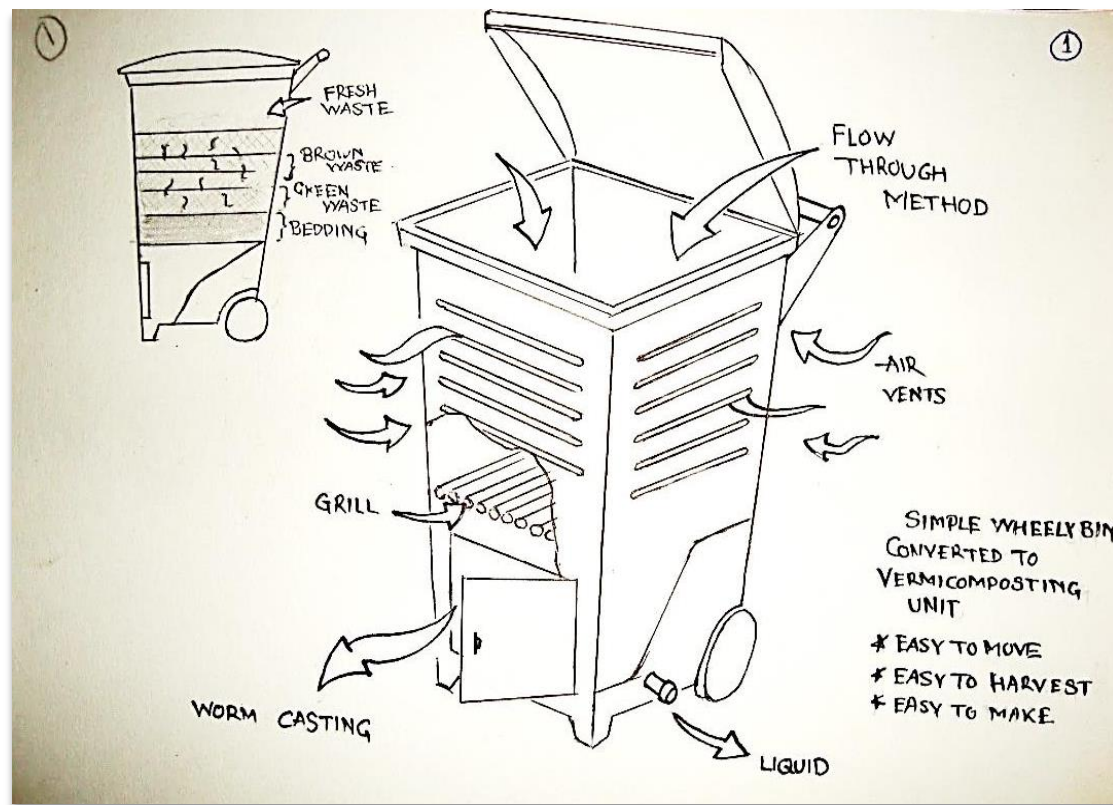 1
FRESH
WASTE
BROWN
WASTE
GREEN
WASTE
BEDDING
1
FLOW
THROUGH
METHOD
AIR
VENTS
GRILL
WORM CASTING
LIQUID
SIMPLE WHEELY BIN
CONVERTED TO
VERMICOMPOSTING
UNIT
* EASY TO MOVE
* EASY TO HARVEST
* EASY TO MAKE